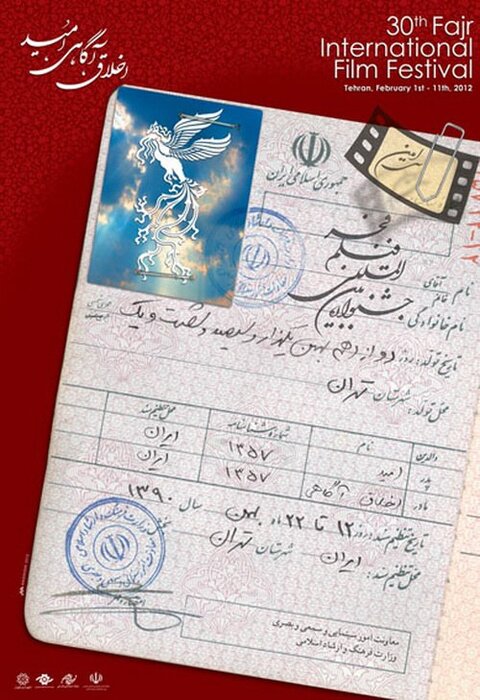 30th Fajr
International
Film Festival
Tehran, February 1st - 11th, 2012
اخلاق آگاهی امید
جمهوری اسلامی ایران
جشنواره بین المللی فیلم فجر
نام آقای خانم
نام خانوادگی
تاریخ تولد: روز دوازدهم بهمن یکهزار و سیصد و شصت و یک
محل تولد: شهرستان تهران
والدین نام شماره شناسنامه محل تنظیم سند
پدر امید ۱۳۵۷ ایران
مادر اخلاق آگاهی ۱۳۵۷ ایران
تاریخ تنظیم سند: روز ۱۲ تا ۲۲ ماه بهمن سال ۱۳۹۰
محل تنظیم سند: ایران شهرستان تهران
معاونت امور سینمایی و سمعی و بصری
وزارت فرهنگ و ارشاد اسلامی